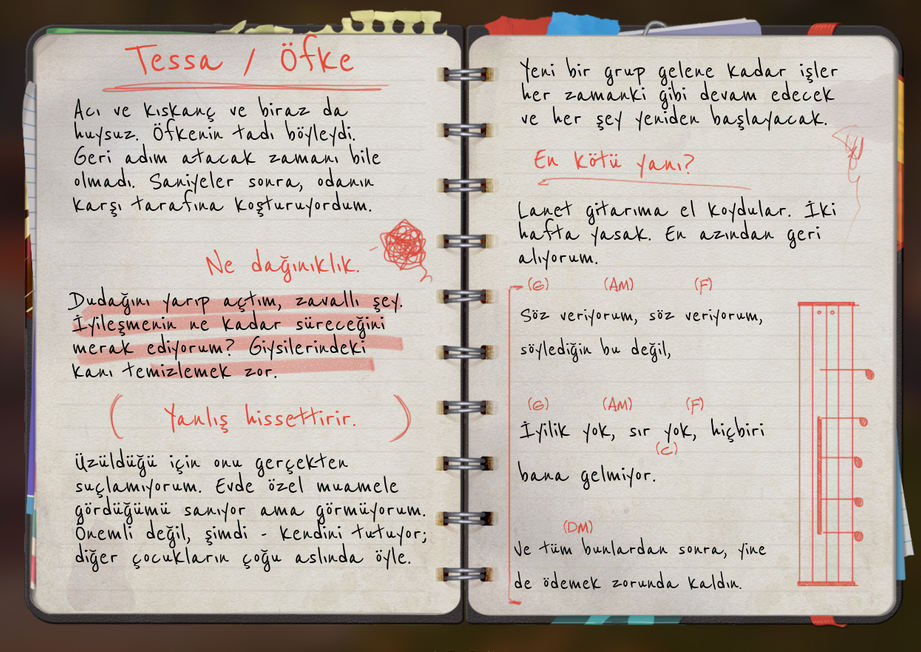 Tessa / Öfke
Acı ve kıskanç ve biraz da
huysuz. Öfkenin tadı böyleydi.
Geri adım atacak zamanı bile
olmadı. Saniyeler sonra, odanın
karşı tarafına koşturuyordum.
Ne dağınıklık.
Dudağını yarıp açtım, zavallı şey.
İyileşmenin ne kadar süreceğini
merak ediyorum? Giysilerindeki
kanı temizlemek zor.
( Yanlış hissettirir. )
Üzüldüğü için onu gerçekten
suçlamıyorum. Evde özel muamele
gördüğümü sanıyor ama görmüyorum.
Önemli değil, şimdi - kendini tutuyor;
diğer çocukların çoğu aslında öyle.
Yeni bir grup gelene kadar işler
her zamanki gibi devam edecek
ve her şey yeniden başlayacak.
En kötü yanı?
Lanet gitarıma el koydular. İki
hafta yasak. En azından geri
alıyorum.
(G) (AM) (F)
Söz veriyorum, söz veriyorum,
söylediğin bu değil,
(G) (AM) (F)
İyilik yok, sır yok, hiçbiri
(C)
bana gelmiyor.
(DM)
Ve tüm bunlardan sonra, yine
de ödemek zorunda kaldın.